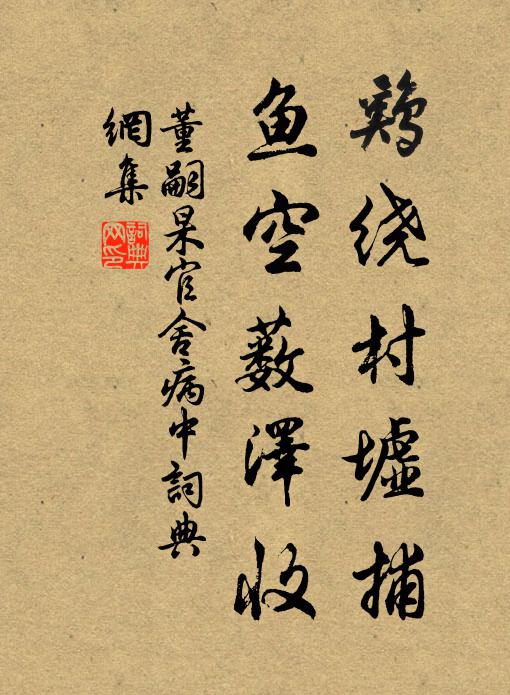 鷄绕村墟捕
鱼空薮澤收
董嗣杲官舍病中詞典
網集
詞典網印